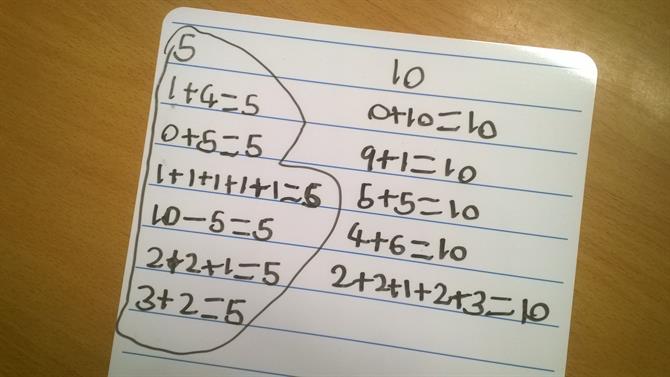 5
1+4=5
0+5=5
1+1+1+1+1=5
10-5=5
2+2+1=5
3+2=5
10
0+10=10
9+1=10
5+5=10
4+6=10
2+2+1+2+3=10